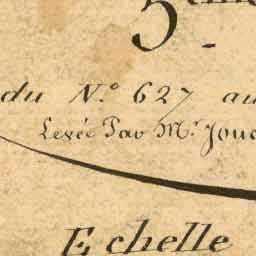 5
du N.º 627 au
Levée Par Mr. Jou
Echelle